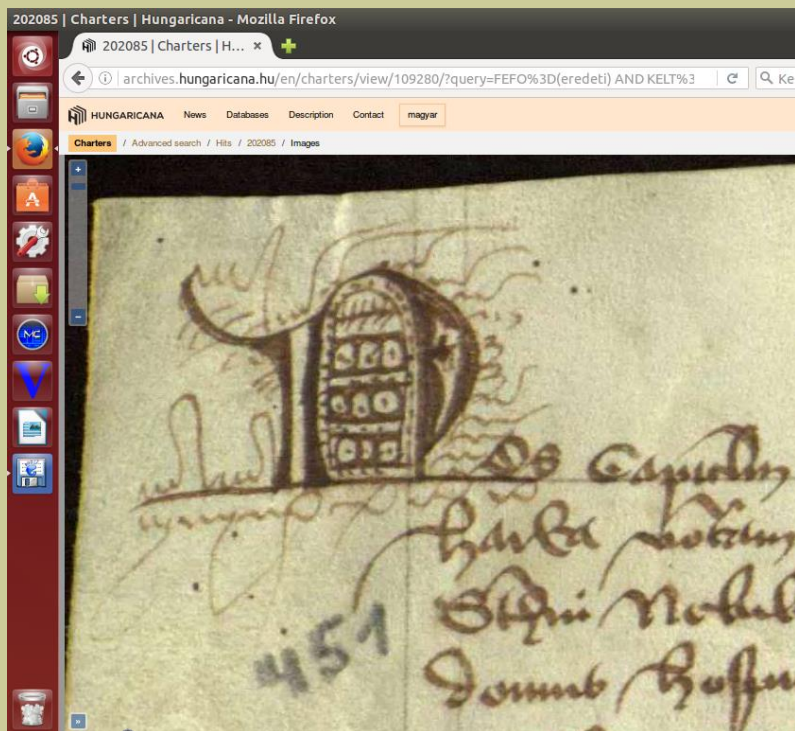 202085 | Charters | Hungaricana - Mozilla Firefox
202085 | Charters | H... ×
archives.hungaricana.hu/en/charters/view/109280/?query=FEFO%3D(eredeti) AND KELT%3
Ke
HUNGARICANA News Databases Description Contact magyar
Charters / Advanced search / Hits / 202085 / Images
Nos Capitulum
451